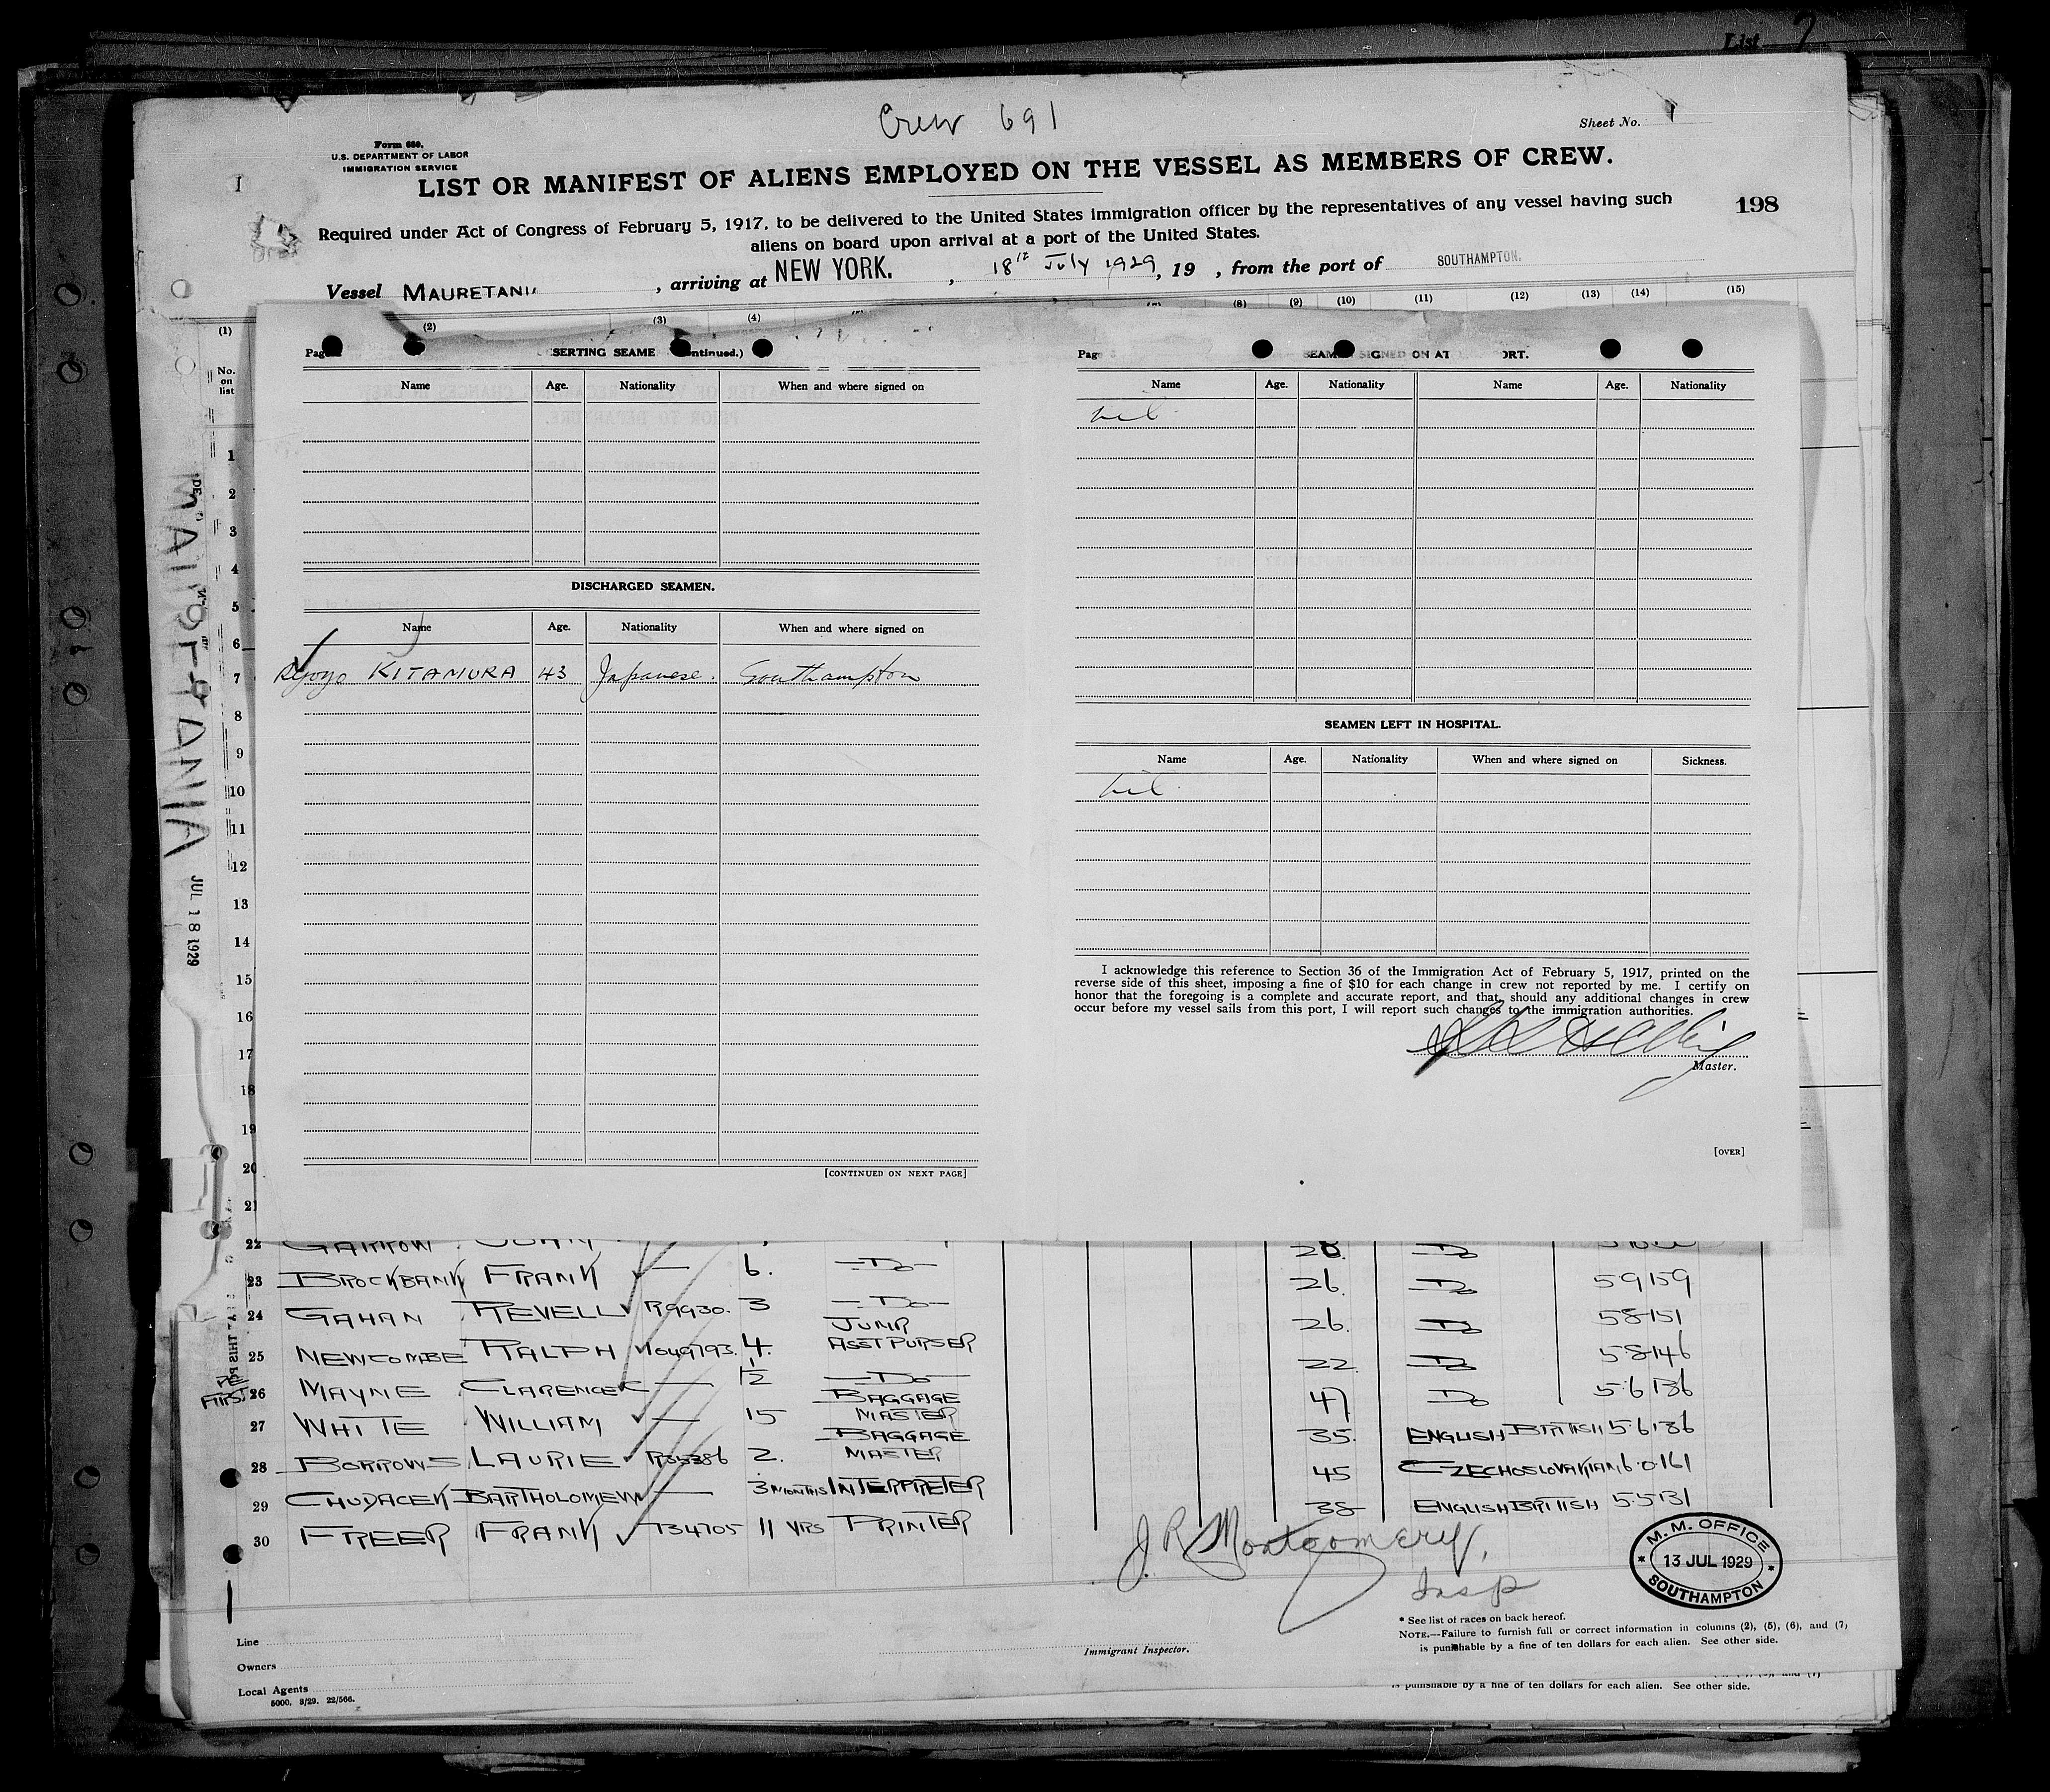 List
Crew 691
Sheet No. 1
Form 680,
U.S. DEPARTMENT OF LABOR
IMMIGRATION SERVICE
LIST OR MANIFEST OF ALIENS EMPLOYED ON THE VESSEL AS MEMBERS OF CREW.
198
Required under Act of Congress of February 5, 1917, to be delivered to the United States immigration officer by the representatives of any vessel having such
aliens on board upon arrival at a port of the United States.
Vessel MAURETANI , arriving at NEW YORK. , 18th July 1929, 19 , from the port of SOUTHAMPTON.
(1) (2) (3) (4) (8) (9) (10) (11) (12) (13) (14) (15)
No. on list
MAURETANIA
JUL 18 1929
SERTING SEAME ntinued.)
Name Age. Nationality When and where signed on
DISCHARGED SEAMEN.
Name Age. Nationality When and where signed on
KITAMURA 43 Japanese. Southampton
[CONTINUED ON NEXT PAGE]
SEAM SIGNED ON AT ORT.
Name Age. Nationality Name Age. Nationality
nil
SEAMEN LEFT IN HOSPITAL.
Name Age. Nationality When and where signed on Sickness.
nil
I acknowledge this reference to Section 36 of the Immigration Act of February 5, 1917, printed on the
reverse side of this sheet, imposing a fine of $10 for each change in crew not reported by me. I certify on
honor that the foregoing is a complete and accurate report, and that, should any additional changes in crew
occur before my vessel sails from this port, I will report such changes to the immigration authorities.
Master.
[OVER]
1
2
3
4
5
6
7
8
9
10
11
12
13
14
15
16
17
18
19
20
21
22 28. Do
23 BROCKBANK FRANK — 6. —Do— 26. Do 59159
24 GAHAN REVELL R9930. 3 —Do— 26. Do 58151
25 NEWCOMBE RALPH 1049793. 4. JUNR ASST PURSER 22. Do 58146
26 MAYNE CLARENCE — 1/2 —Do— 47 Do 5.6 136
27 WHITE WILLIAM — 15 BAGGAGE MASTER 35. ENGLISH BRITISH 5.6 136
28 BORROWS LAURIE 2. BAGGAGE MASTER 45 CZECHOSLOVAKIAN 6.0.161
29 CHUDACEK BARTHOLOMEW — 3 MONTHS INTERPRETER 38 ENGLISH BRITISH 5.5 131
30 FREER FRANK 734705 11 YRS PRINTER
J R Montgomery,
Insp
M. M. OFFICE
13 JUL 1929
SOUTHAMPTON
* See list of races on back hereof.
NOTE.—Failure to furnish full or correct information in columns (2), (5), (6), and (7)
is punishable by a fine of ten dollars for each alien. See other side.
Immigrant Inspector.
Line
Owners
Local Agents
5000, 3/29. 22/566.
is punishable by a fine of ten dollars for each alien. See other side.